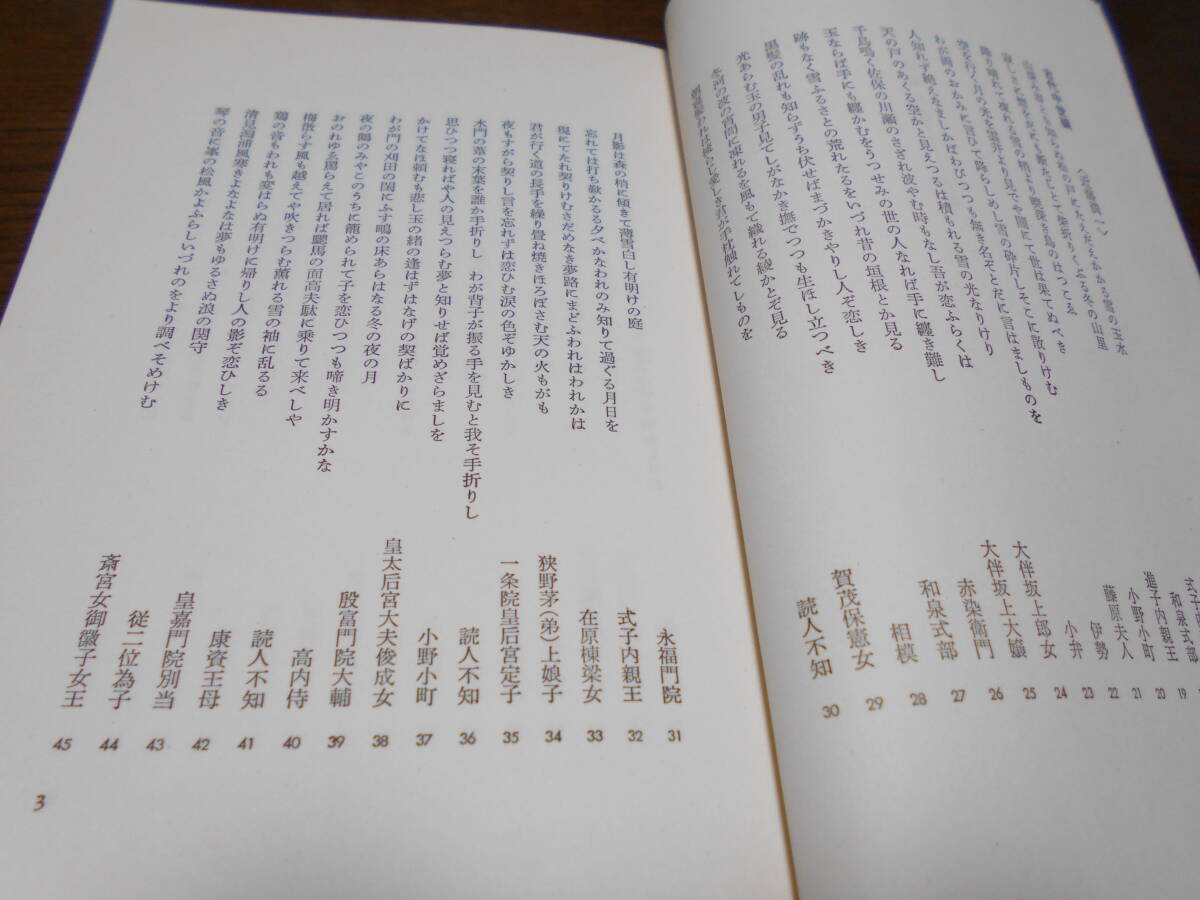 山深み春とも知らぬ松の戸にたえだえかかる雪の玉水 式子内
柴折りくぶる冬の山里 和泉式部
降り晴れて氷れる雪の梢より暁深き鳥のはつこゑ 進子内親王 19
空を行く月の光を雲井より見でや闇にて世は果てぬべき 小野小町 20
わが岡のおかみに言ひて降らしめし雪の砕片しそこに散りけむ 藤原夫人 21
人知れず絶えなましかばわびつつも無き名ぞとだに言はましものを 伊勢 22
天の戸のあくる空かと見えつるは積もれる雪の光なりけり 小弁 23
千鳥鳴く佐保の川瀬のさざれ波やむ時もなし吾が恋ふらくは 大伴坂上郎女 24
玉ならば手にも纏かむをうつせみの世の人なれば手に纏き難し 大伴坂上大嬢 25
跡もなく雪ふるさとの荒れたるをいづれ昔の垣根とか見る 赤染衛門 26
黒髪の乱れも知らずうち伏せばまづかきやりし人ぞ恋しき 和泉式部 27
光あらむ玉の男子見てしがなかき撫でつつも生ほし立つべき 相模 28
冬河の波の宵間に凍れるを風もて織れる綾かとぞ見る 賀茂保憲女 29
朝寝髪われは梳らじ愛しき君が手枕触れてしものを 読人不知 30
月影は森の梢に傾きて薄雪白し有明けの庭 永福門院 31
忘れては打ち歎かるる夕べかなわれのみ知りて過ぐる月日を 式子内親王 32
現にてたれ契りけむさだめなき夢路にまどふわれはわれかは 在原棟梁女 33
君が行く道の長手を繰り畳ね焼きほろぼさむ天の火もがも 狭野茅(弟)上娘子 34
夜もすがら契りし言を忘れずは恋ひむ涙の色ぞゆかしき 一条院皇后宮定子 35
水門の葦の末葉を誰か手折りし わが背子が振る手を見むと我そ手折りし 読人不知 36
思ひつつ寝ればや人の見えつらむ夢と知りせば覚めざらましを 小野小町 37
かけてなほ頼むも悲し玉の緒の逢はずはなげの契ばかりに 皇太后宮大夫俊成女 38
わが門の刈田の閨にふす鴫の床あらはなる冬の夜の月 殷富門院大輔 39
夜の鶴のみやこのうちに籠められて子を恋ひつつも啼き明かすかな 高内侍 40
おのれゆゑ罵らえて居れば驄馬の面高夫駄に乗りて来べしや 読人不知 41
梅散らす風も越えてや吹きつらむ薫れる雪の袖に乱るる 康資王母 42
鶏の音もわれも変はらぬ有明けに帰りし人の影ぞ恋ひしき 皇嘉門院別当 43
清見潟浦風寒きよなよなは夢もゆるさぬ浪の関守 従二位為子 44
琴の音に峯の松風かよふらしいづれのをより調べそめけむ 斎宮女御徽子女王 45
3